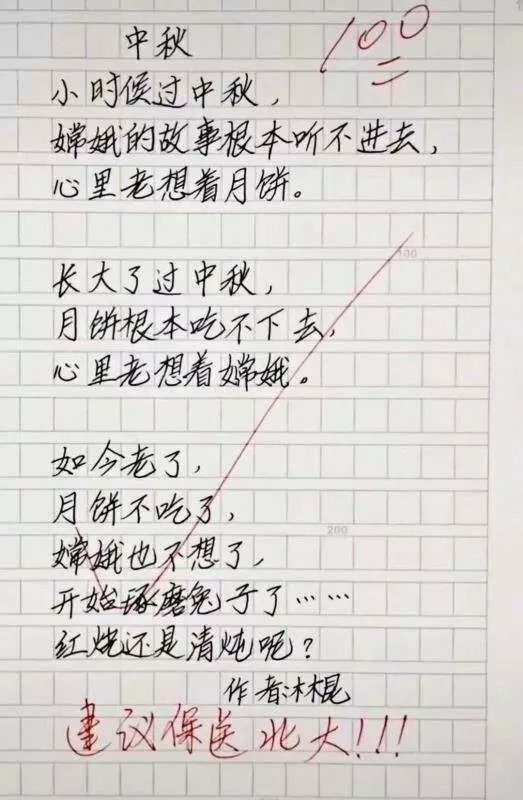 中秋
100
小时候过中秋，
嫦娥的故事根本听不进去，
心里老想着月饼。
100
长大了过中秋，
月饼根本吃不下去，
心里老想着嫦娥。
如今老了，
月饼不吃了，
200
嫦娥也不想了，
开始琢磨兔子了……
红烧还是清炖呢？
作者：木棍
建议保送北大!!!